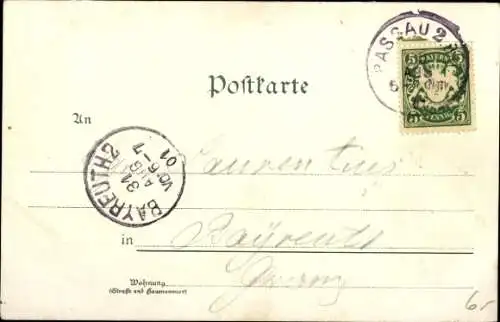 PASSAU 2
BAYERN
5 5
5 5
PFENNIG
Postkarte
An
BAYREUTH 2
31
AUG
VO 6-7
01
Laurentius
in Bayreuth
Wohnung
(Straße und Hausnummer)
6.-